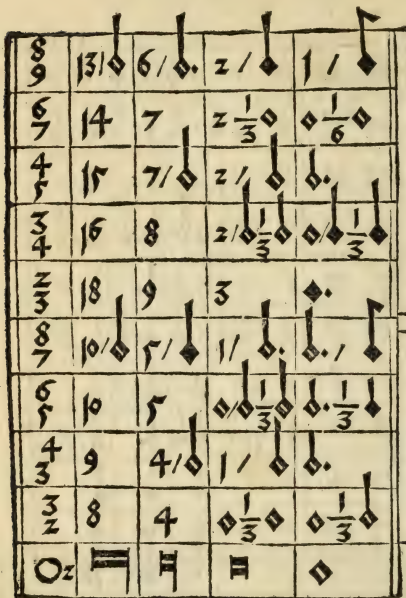 8/9 13/ 6/ . 2/ 1/
6/7 14 7 2 1/3 1/6
4/5 15 7/ 2/ .
3/4 16 8 2/ 1/3 / 1/3
2/3 18 9 3 .
8/7 10/ 5/ 1/ . . /
6/5 10 5 / 1/3 . 1/3
4/3 9 4/ 1/ .
3/2 8 4 1/3 1/3
O2